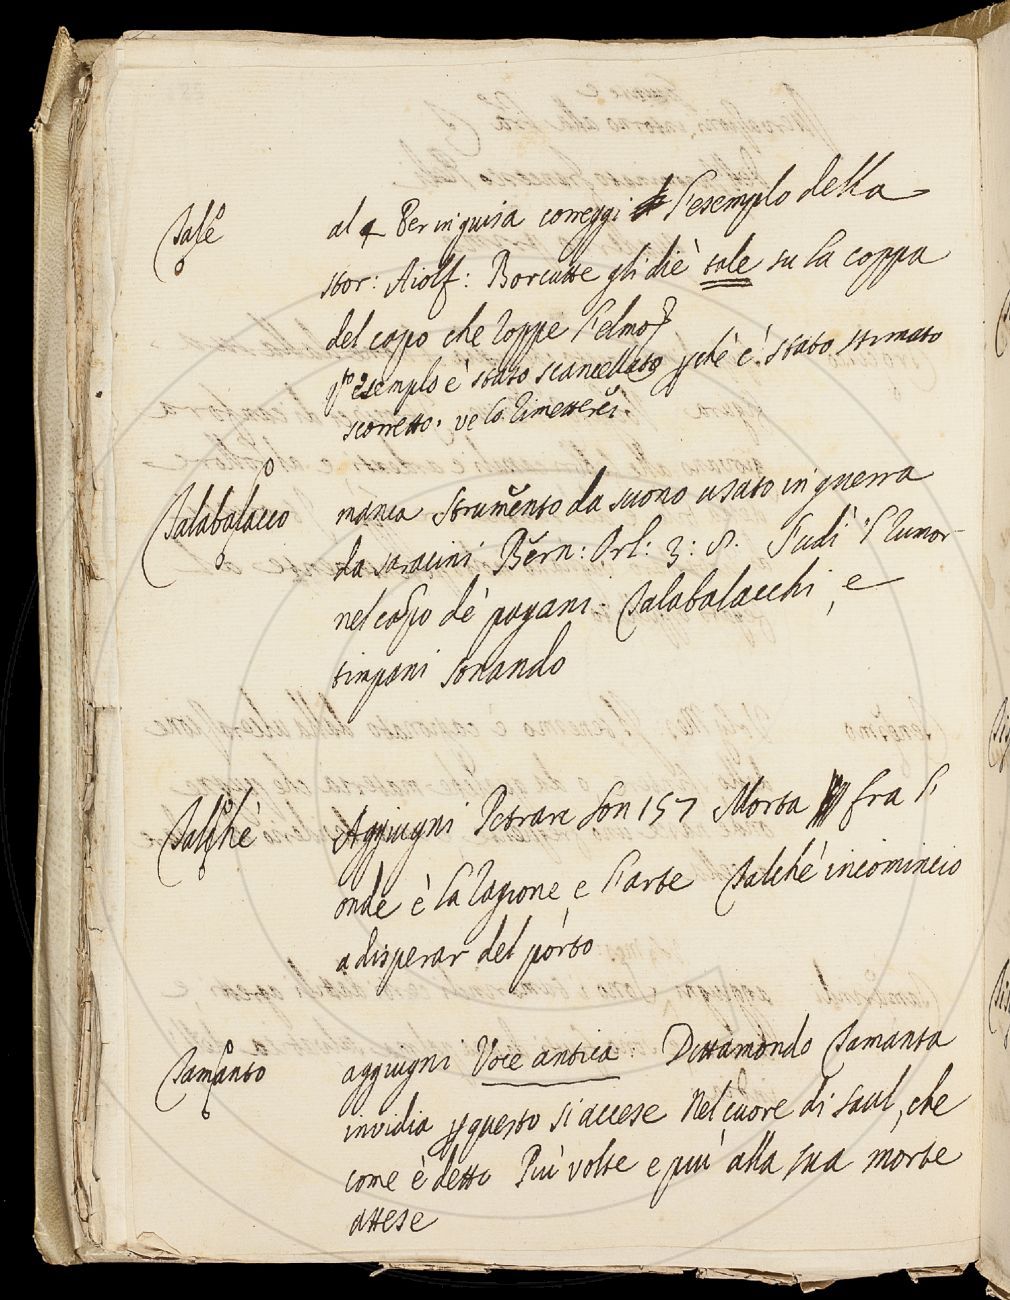 Tale
al 4 Per in guisa correggi l'esemplo della
stor: Aiolf: Borcutte gli diè tale su la coppa
del capo che roppe l'elmo
esemplo è stato scancellato pchè è stato stimato
scorretto. ve lo rimetterei.
Talabalacco
manca strumento da suono usato in guerra
da saracini Bern: Orl: 3: 8. S'udì 'l rumor
nel capo de' pagani. Talabalacchi, e
timpani sonando
Talchè
Aggiugni Petrar Son 157 Morta fra l'
onde è la ragione, e l'arte Talchè incomincio
a disperar del porto
Tamanto
aggiugni Voce antica. Dittamondo Tamanta
invidia p questo si accese Nel cuore di Saul, che
come è detto Più volte e più alla sua morte
attese